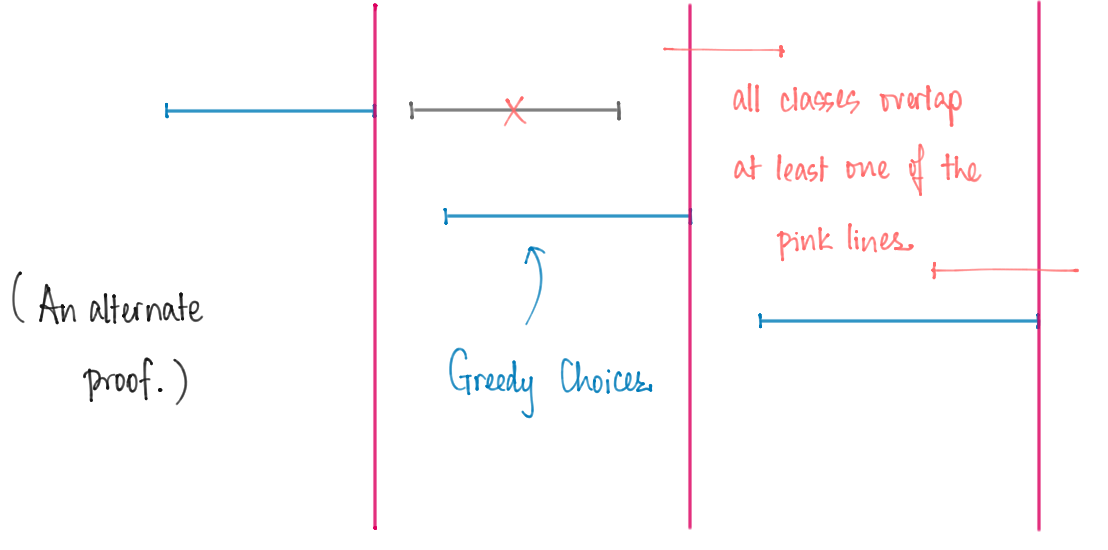 all classes overlap
at least one of the
pink lines.
(An alternate
proof.)
Greedy Choices.